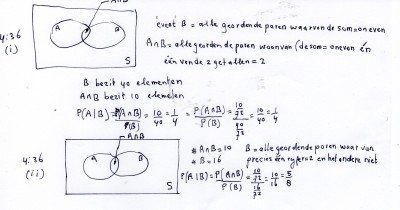 A∩B
A
B
S
4.36
(i)
évent B = alle geordende paren waarvan de som=oneven
A∩B = alle geordende paren waarvan (de som = oneven én
één van de 2 getallen = 2
B bezit 40 elementen
A∩B bezit 10 elemelen
P(A|B) = P(A∩B)/P(B) = 10/40 = 1/4 = P(A∩B)/P(B) = (10/72)/(40/72) = 10/40 = 1/4
A∩B
A
B
S
4.36
(ii)
# A∩B = 10
# B = 16
B = alle geordende paren waar van
precies één cijfer=2 en het andere niet
P(A|B) = P(A∩B)/P(B) = (10/72)/(16/72) = 10/16 = 5/8